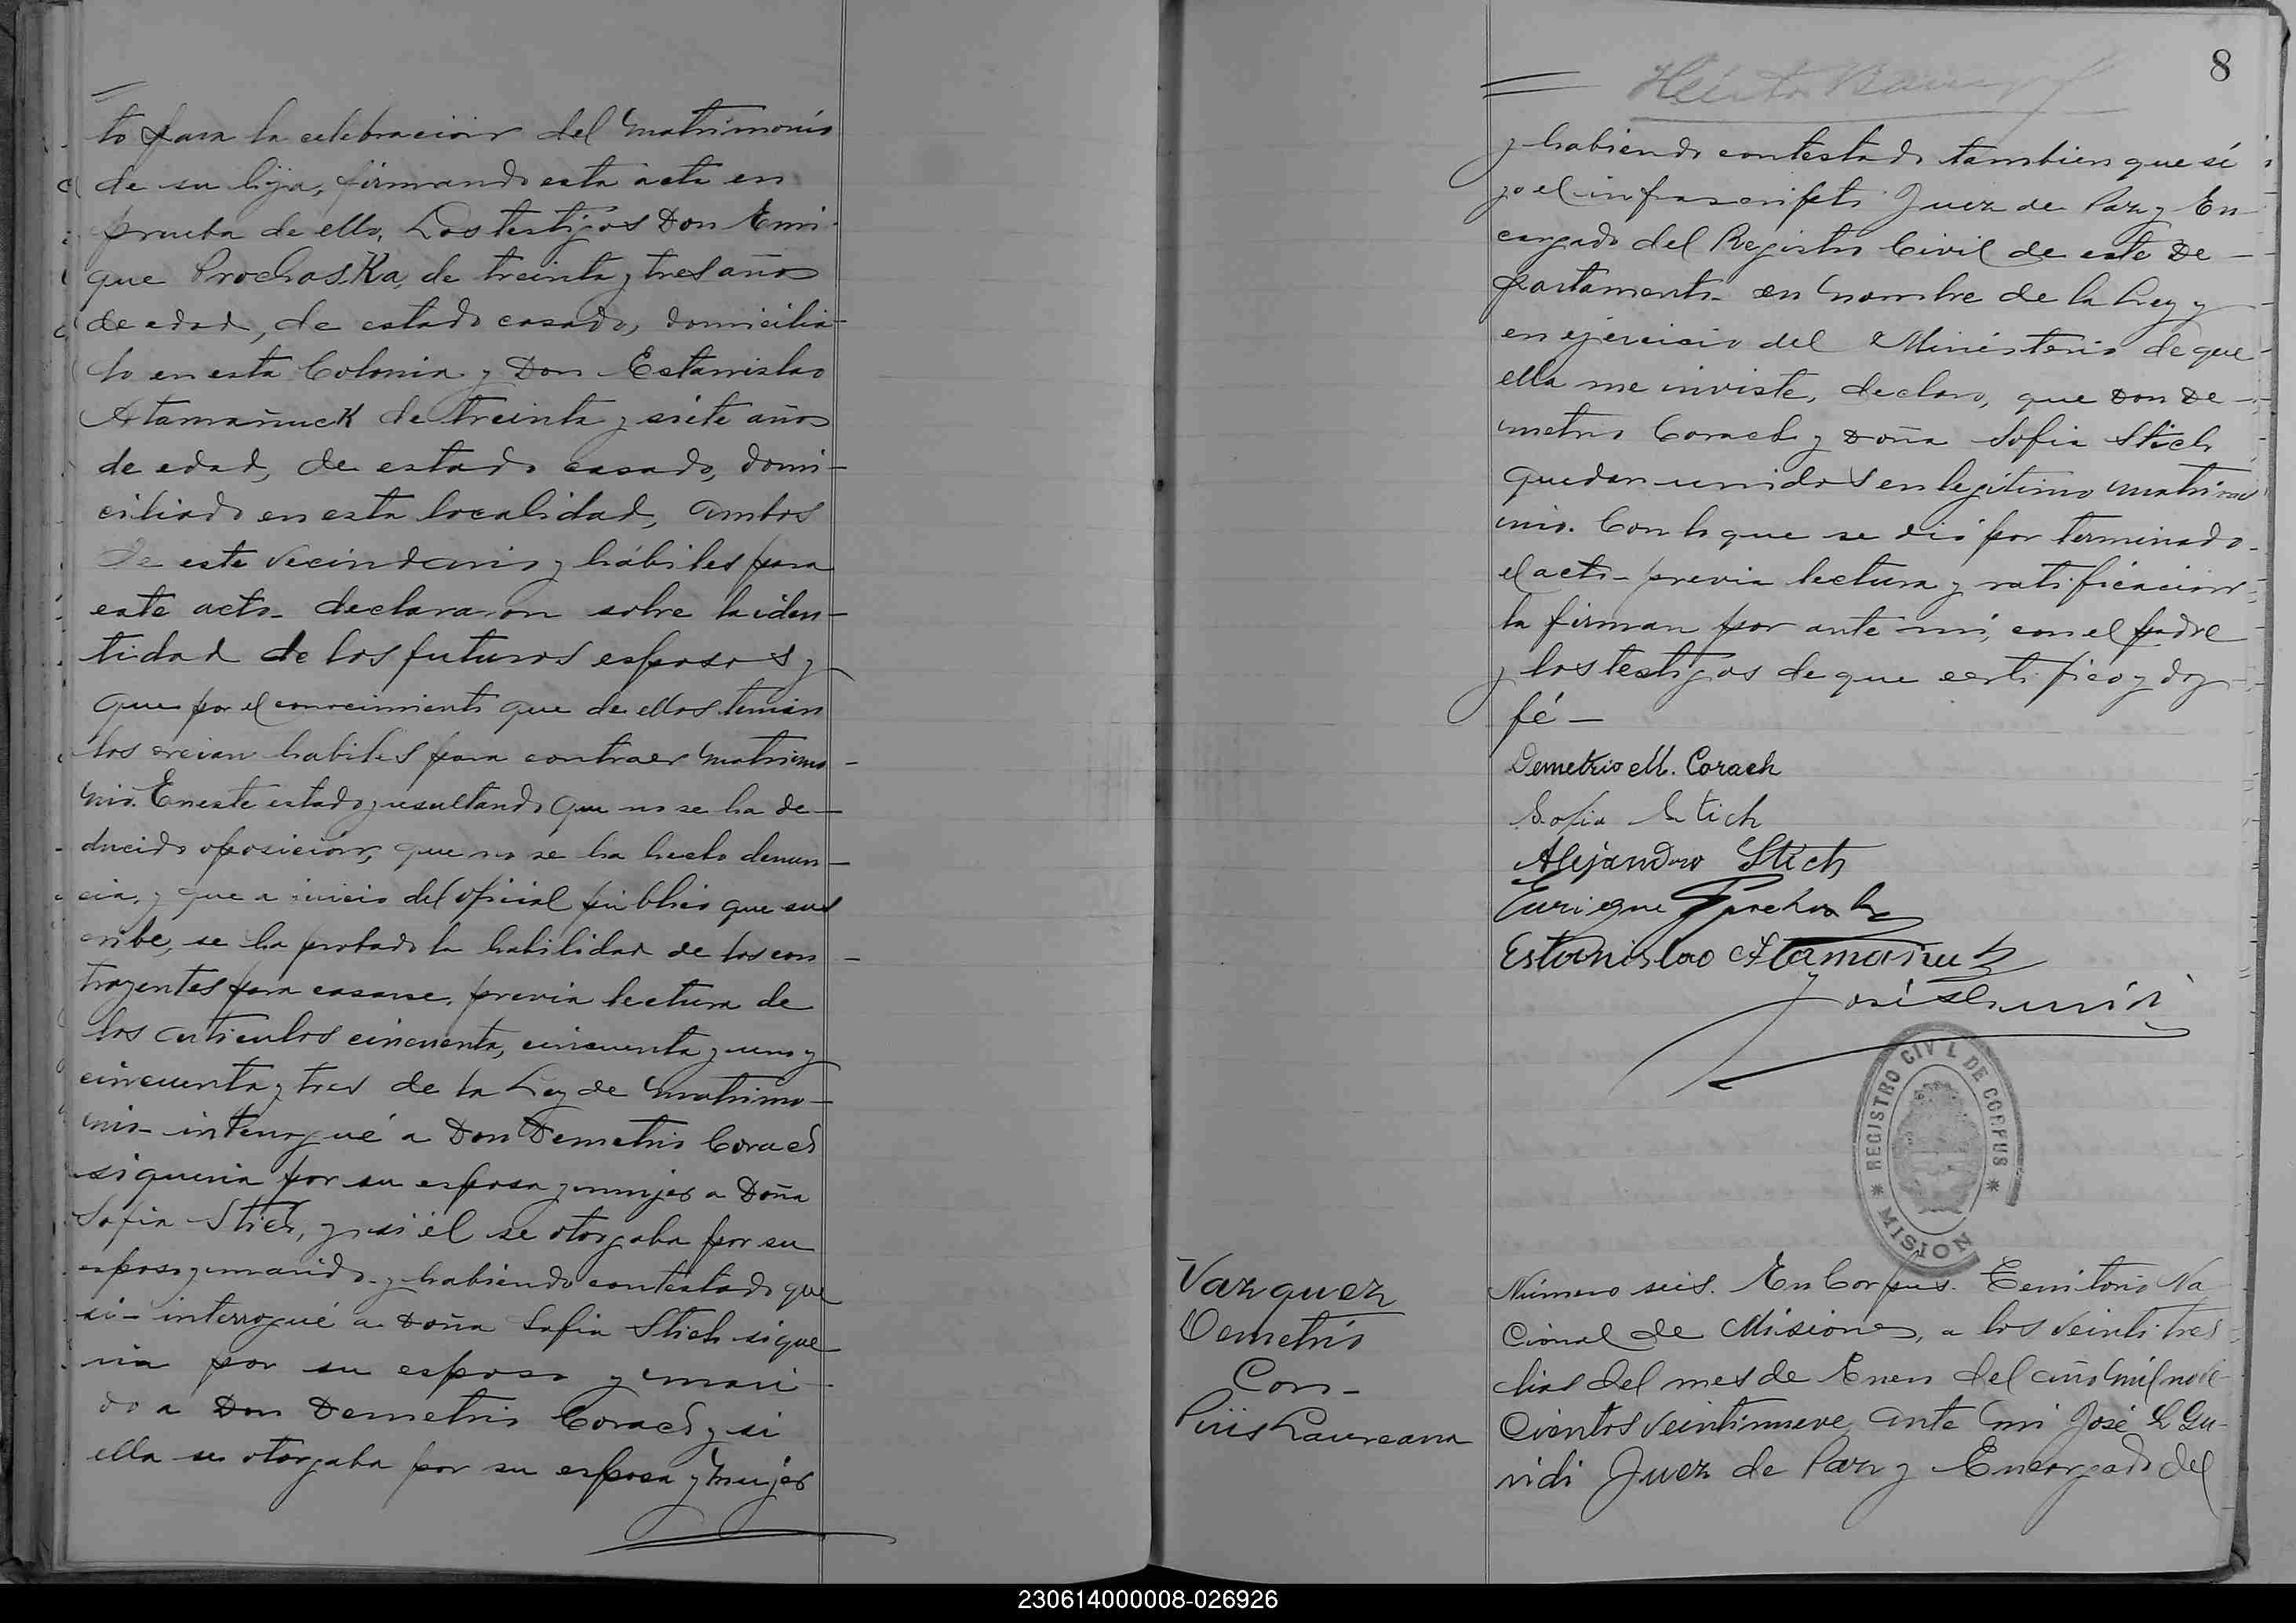 to para la celebracion del Matrimonio
de su hija, firmando esta acta en
prueba de ello, Los testigos Don Enri-
que Prochaska, de treinta y tres años
de edad, de estado casado, domicilia-
do en esta Colonia y Don Estanislao
Atamañuck de treinta y siete años
de edad, de estado casado, domi-
ciliado en esta localidad, ambos
de este vecindario y hábiles para
este acto- declararon sobre la iden-
tidad de los futuros esposos y
que por el conocimiento que de ellos tenian
los creian habiles para contraer matrimo-
nio. En este estado y resultando que no se ha de-
ducido oposicion, que no se ha hecho denun-
cia, y que a juicio del oficial público que sus
cribe, se ha probado la habilidad de los con-
trayentes para casarse, previa lectura de
los articulos cincuenta, cincuenta y uno y
cincuenta y tres de la Ley de Matrimo-
nio- interrogué a Don Demetrio Corach
si queria por su esposa y mujer a Doña
Sofia Stich, y si él se otorgaba por su
esposo y marido- y habiendo contestado que
si- interrogué a Doña Sofia Stich si que
ria por su esposo y mari-
do a Don Demetrio Corach y si
ella se otorgaba por su esposa y mujer
8
Héctor
y habiendo contestado tambien que sí
yo el infrascripto Juez de Paz y En-
cargado del Registro Civil de este De-
partamento- en nombre de la Ley y
en ejercicio del Ministerio de que
ella me inviste, declaro, que Don De-
metrio Corach y Doña Sofia Stich
quedan unidos en legitimo matrimo
nio. Con lo que se dió por terminado
el acto- previa lectura y ratificacion
la firman por ante mí, con el padre
y los testigos de que certifico y doy
fé-
Demetrio M. Corach
Sofia Stich
Alejandro Stich
Enrique Prochaska
Estanislao Atamañuk
José
REGISTRO CIVIL DE CORPUS
* MISION *
Vazquez
Demetrio
Con-
Piris Laureana
Número seis. En Corpus. Territorio Na
cional de Misiones, a los veintitres
dias del mes de Enero del año mil nove-
cientos veintinueve ante mi José L Gu-
ridi Juez de Paz y Encargado del
230614000008-026926